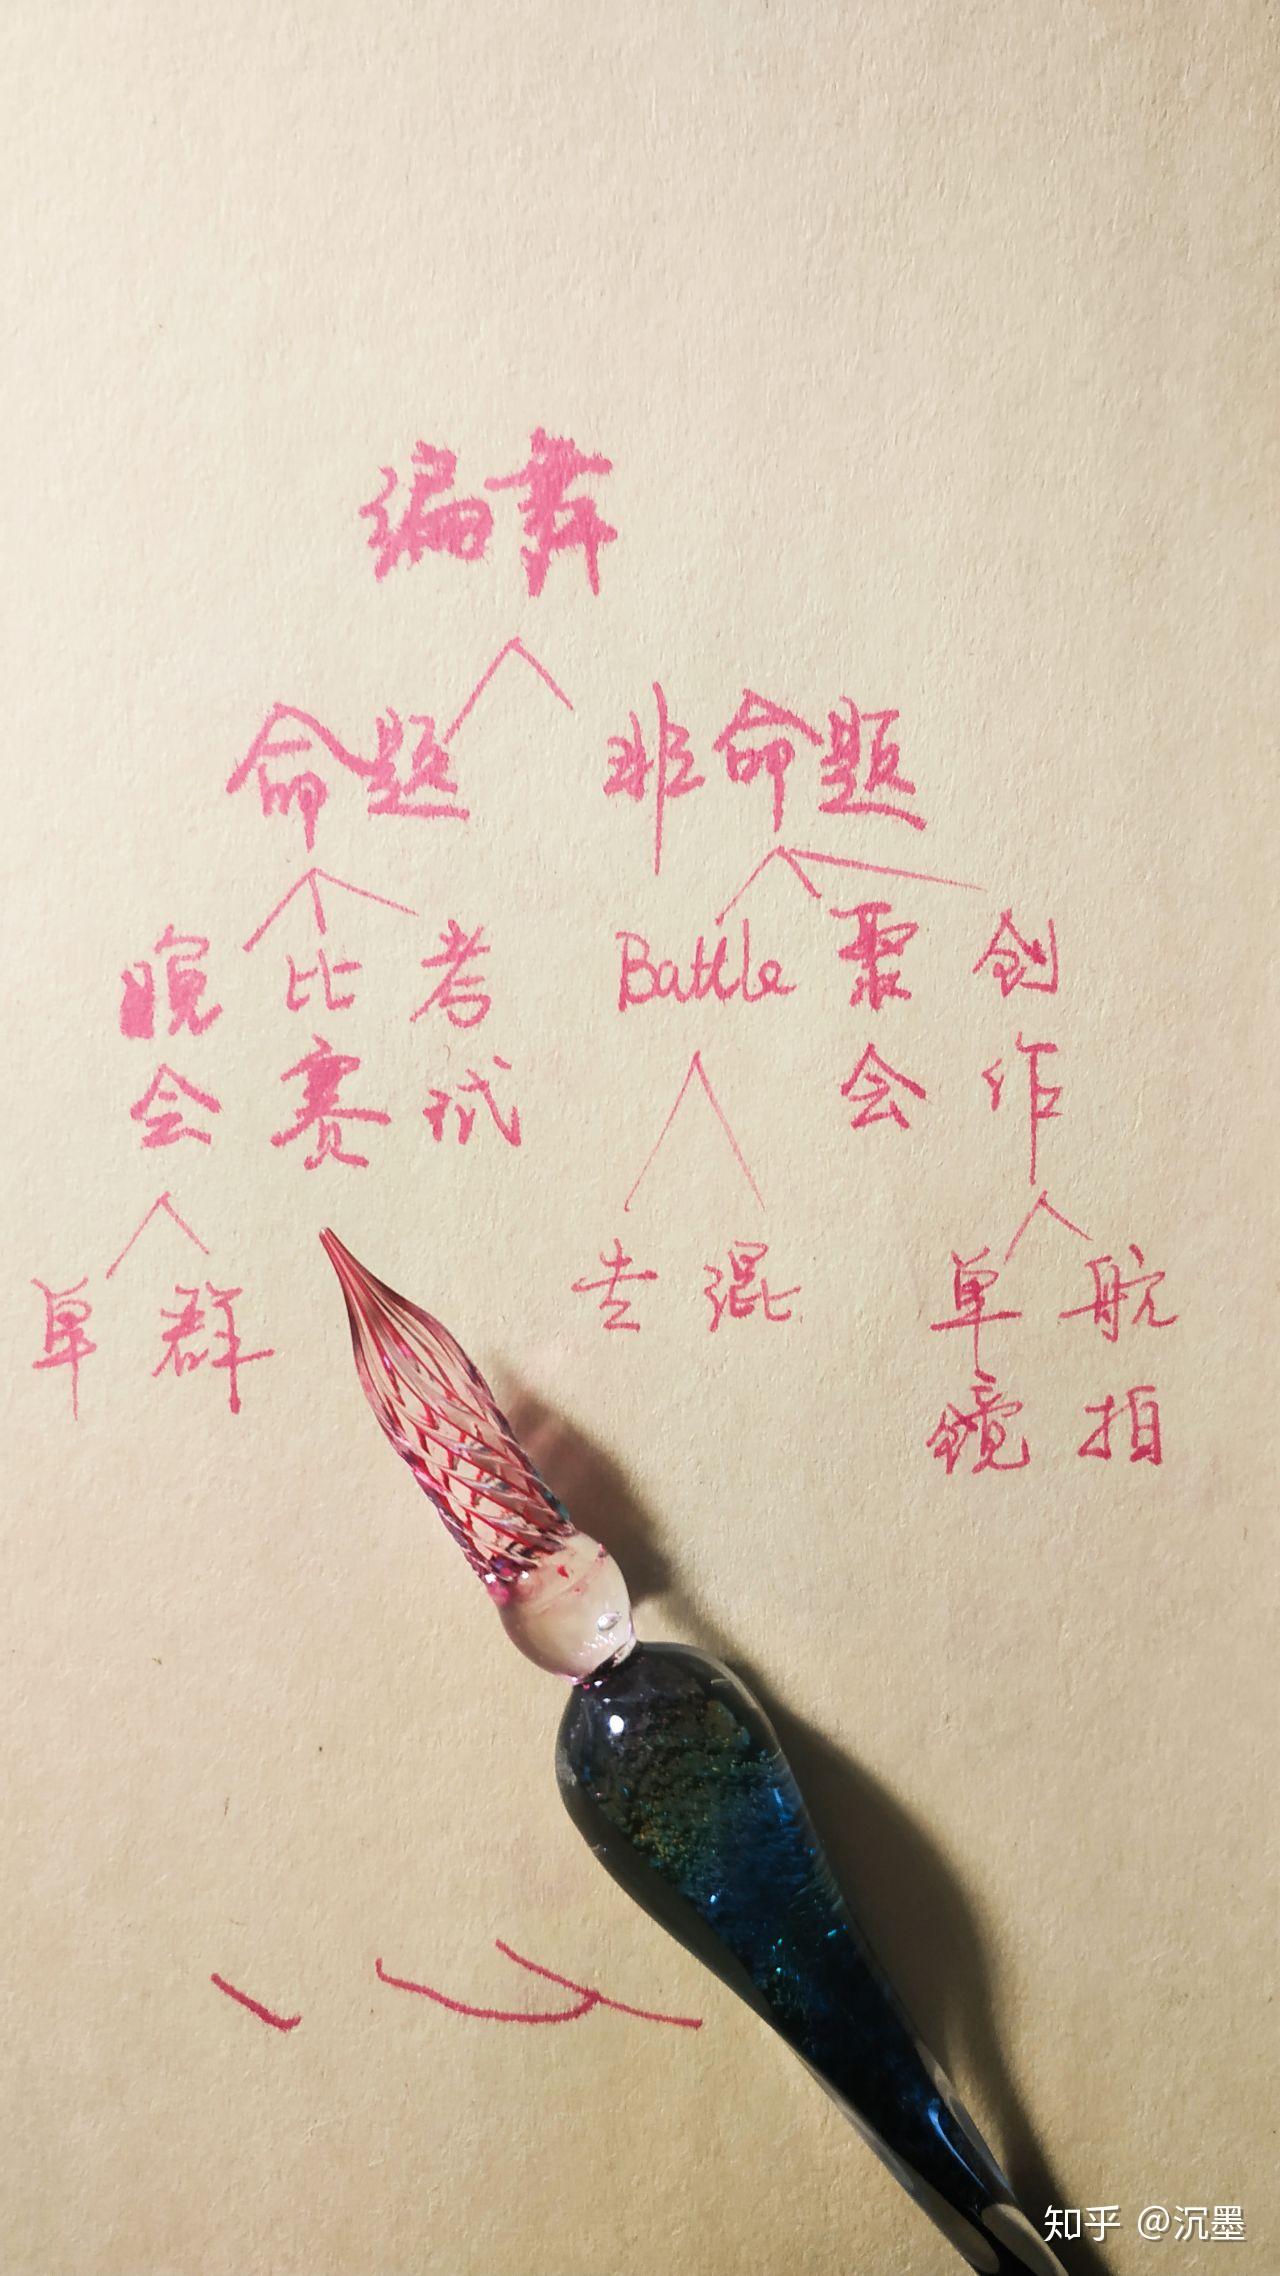 编舞
命题 非命题
晚会 比赛 考试 Battle 聚会 创作
单 群 专 混 单镜 航拍
知乎 @沉墨